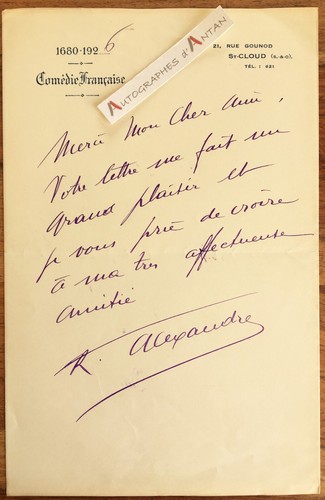 1680-1926
Comédie Française
AUTOGRAPHES d'ANTAN
21, RUE GOUNOD
ST-CLOUD (S.-&-O.)
TÉL. : 421
Merci Mon Cher Ami,
Votre lettre me fait un
grand plaisir et
je vous prie de croire
à ma très affectueuse
amitié
R. Alexandre